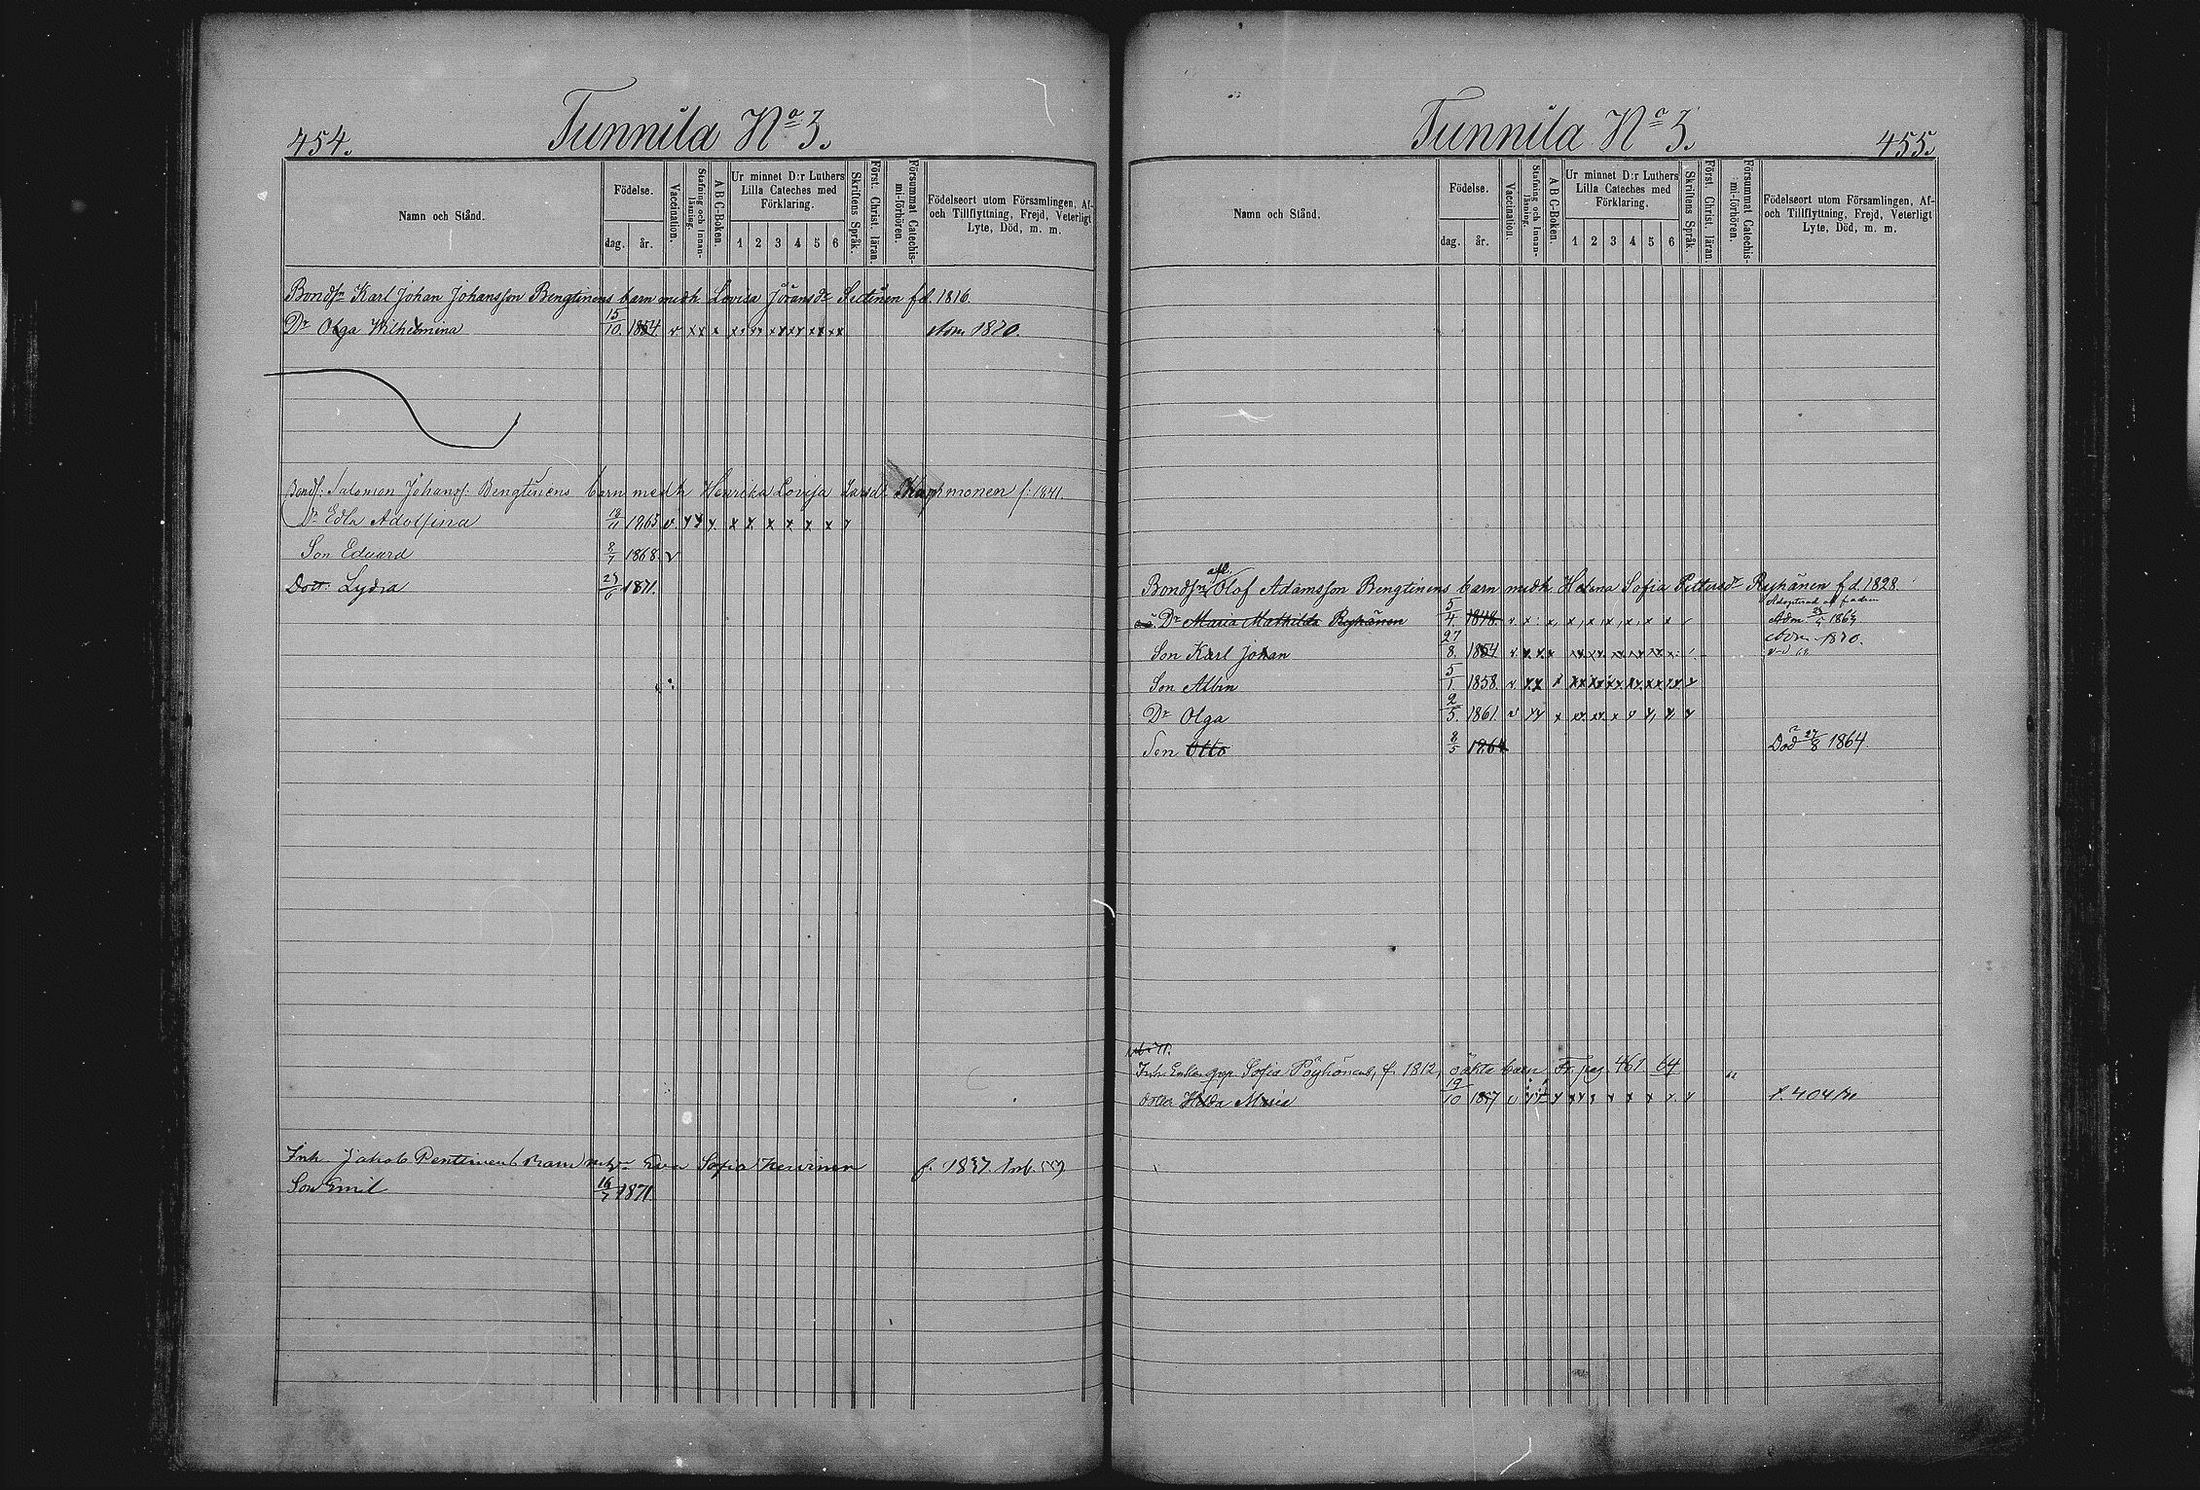 454.
Tunnila No 3.
Namn och Stånd.
Födelse.
dag.
år.
Vaccination.
Stafning och Innan-läsning.
A B C-Boken.
Ur minnet D:r Luthers Lilla Cateches med Förklaring.
1 2 3 4 5 6
Skriftens Språk.
Först. Christ. läran.
Försummat Catechis-mi-förhören.
Födelseort utom Församlingen, Af- och Tillflyttning, Frejd, Veterligt Lyte, Död, m. m.
Bondsn Karl Johan Johansson Bengtinens barn medh Lovisa Jöransdr Sictinen f d. 1816.
Dr Olga Wilhelmina 15/10. 1854. v xx x xx xx xx xx xx xx Adm. 1870.
Bonds: Salomon Johans: Bengtinens barn medh Henrika Lovisa Larsdr f: 1841.
Dr Edla Adolfina 1865 v. x x x x x x x x x x
Son Eduard 8/7 1868. v
Dott: Lydia 1871.
Inh. Jakob Penttinen barn Eva Sofia f. 1837. Inb.
Son Emil 16/7 1871
Tunnila No 3.
455.
Namn och Stånd.
Födelse.
dag.
år.
Vaccination.
Stafning och Innan-läsning.
A B C-Boken.
Ur minnet D:r Luthers Lilla Cateches med Förklaring.
1 2 3 4 5 6
Skriftens Språk.
Först. Christ. läran.
Försummat Catechis-mi-förhören.
Födelseort utom Församlingen, Af- och Tillflyttning, Frejd, Veterligt Lyte, Död, m. m.
afl.
Bondsn Olof Adamsson Bengtinens barn medh Helena Sofia Pettersdr Ryhänen f d. 1828.
Dr Maria Mathilda Ryhänen 5/4. 1848. v x x x x x x x x Adm 1863.
Son Karl Johan 27/8. 1854 v. x x x xx xx xx xx xx x Adm. 1870.
Son Albin 5/1 1858 v. xx x xx xx xx xx xx xx x
Dr Olga 2/5. 1861. v xx x xx xx x x x x x
Son Otto 8/5 1864 Död 27/8 1864.
Inh. Enkan Sofia Pöyhönens, f. 1812, oäkta barn Fr. pag. 461 64
Hilda Maria 19/10 1857 v x x x xx x x x x x x f. 404